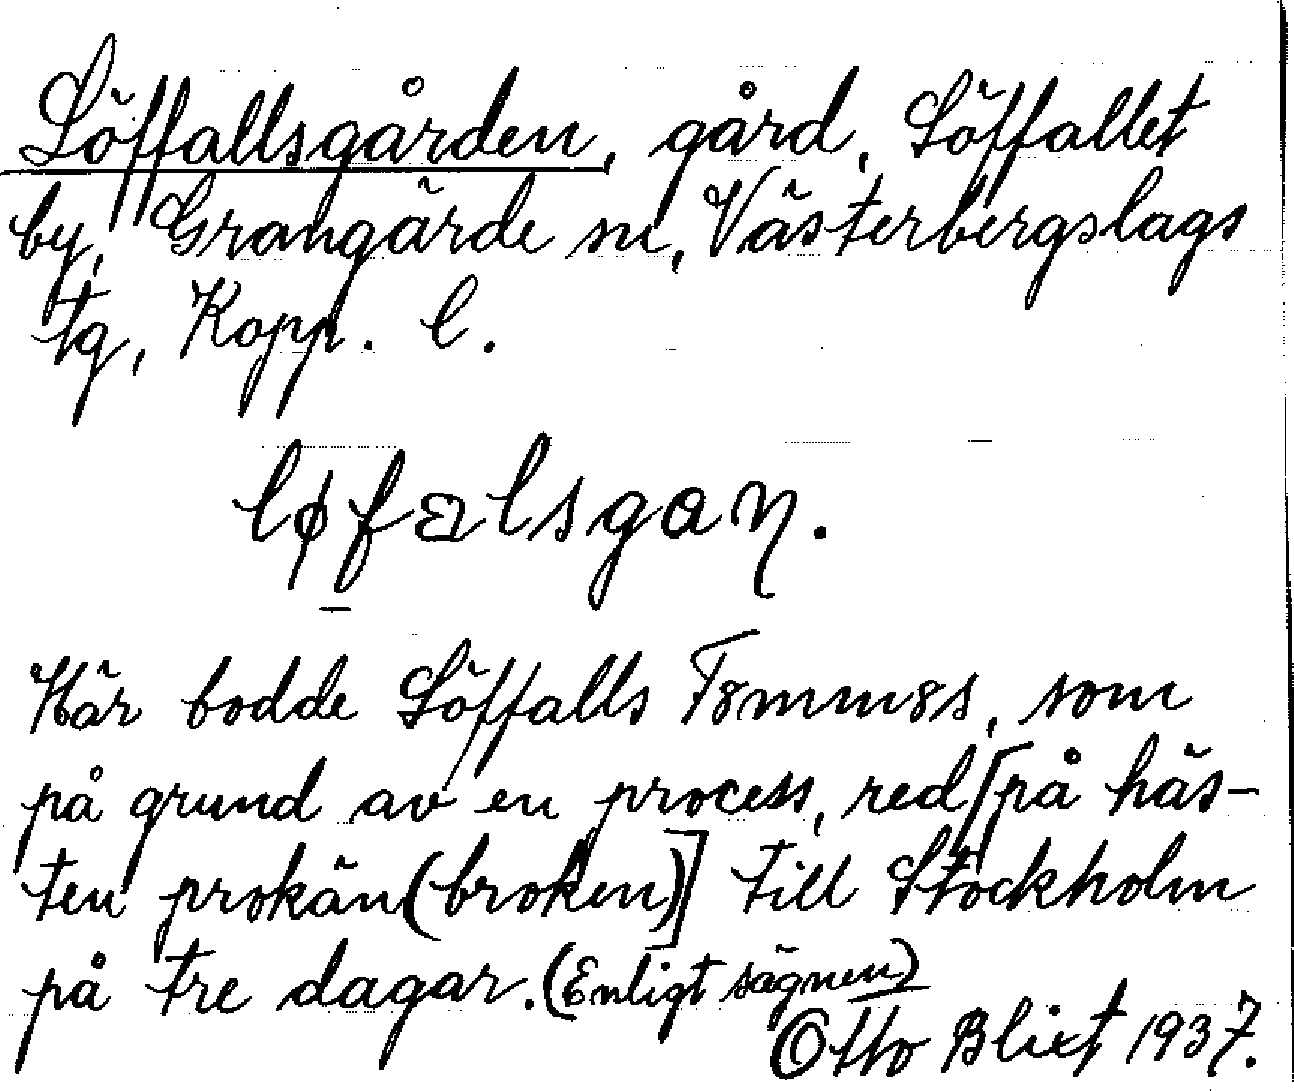 Löffallsgården, gård, Löffallet
by, Grangärde sn, Västerbergslags
tg, Kopp. l.
løfalsgaɳ.
Här bodde Löffalls Tommos, som
på grund av en process, red [på häs-
ten prokän (broken)] till Stockholm
på tre dagar. (Enligt sägnen)
Otto Blixt 1937.